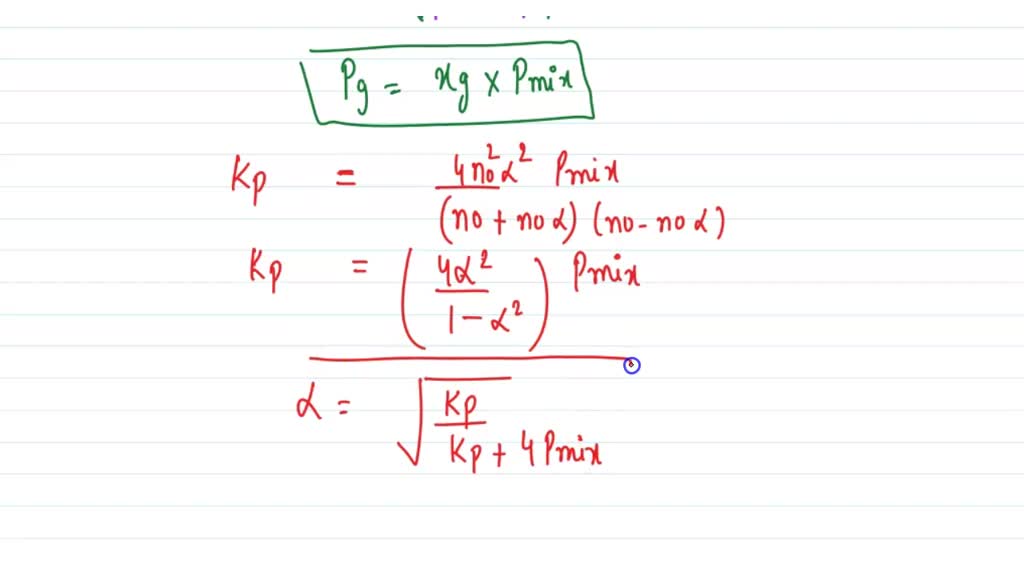 Pg = xg × Pmix
Kp = 4n₀²α² Pmix / (n₀ + n₀α) (n₀ - n₀α)
Kp = (4α² / 1 - α²) Pmix
α = √(Kp / Kp + 4Pmix)